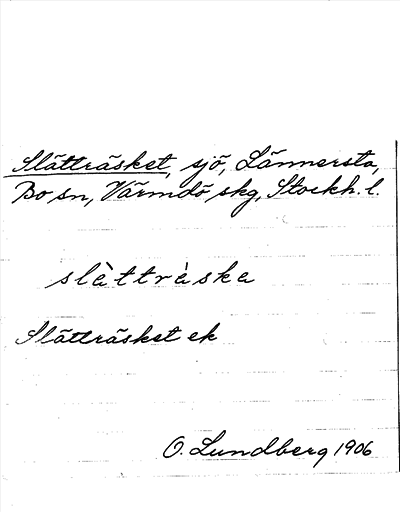 Slätträsket, sjö, Lännersta,
Bo sn, Värmdö skg, Stockh. l.
slàttràska
Slätträsket ek
O. Lundberg 1906